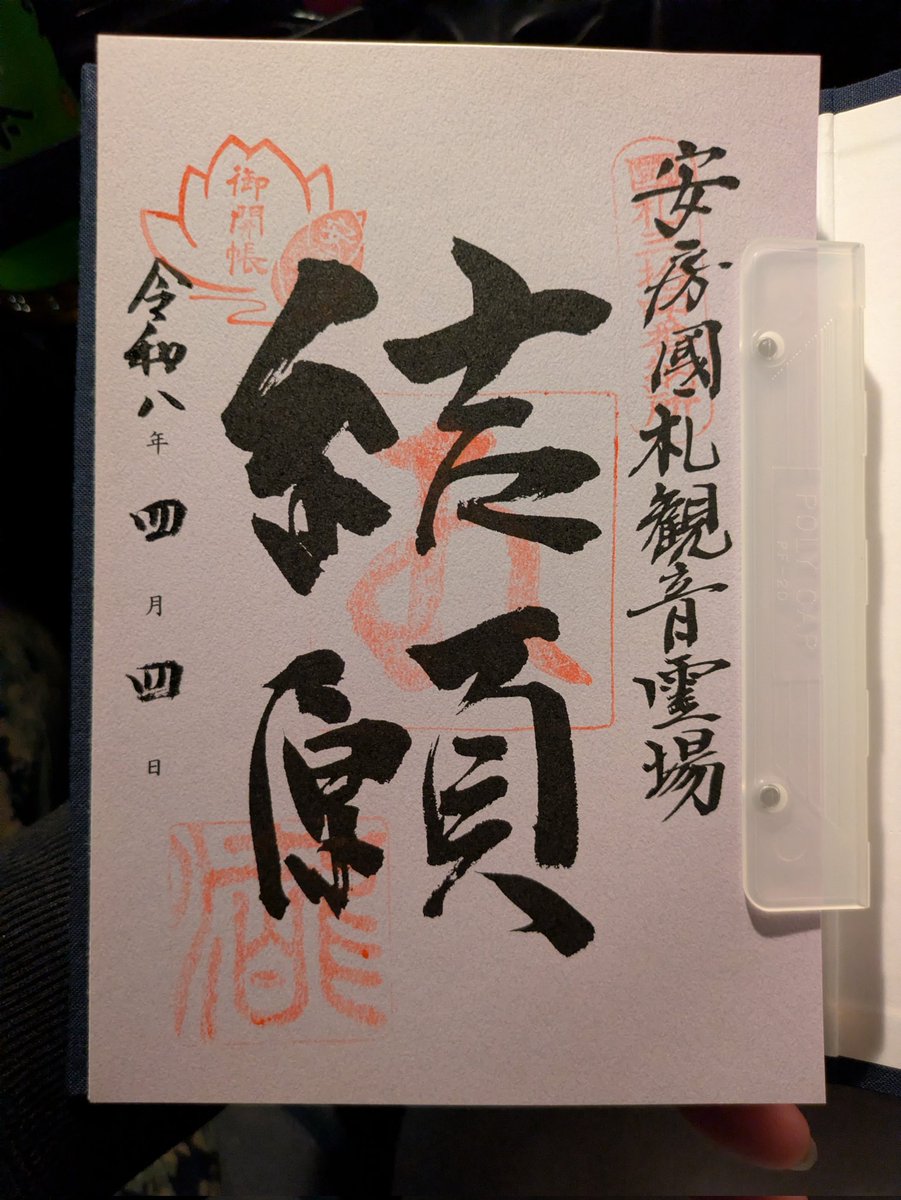 安房國札観音霊場
結願
御開帳
令和八年四月四日
POLY CAP